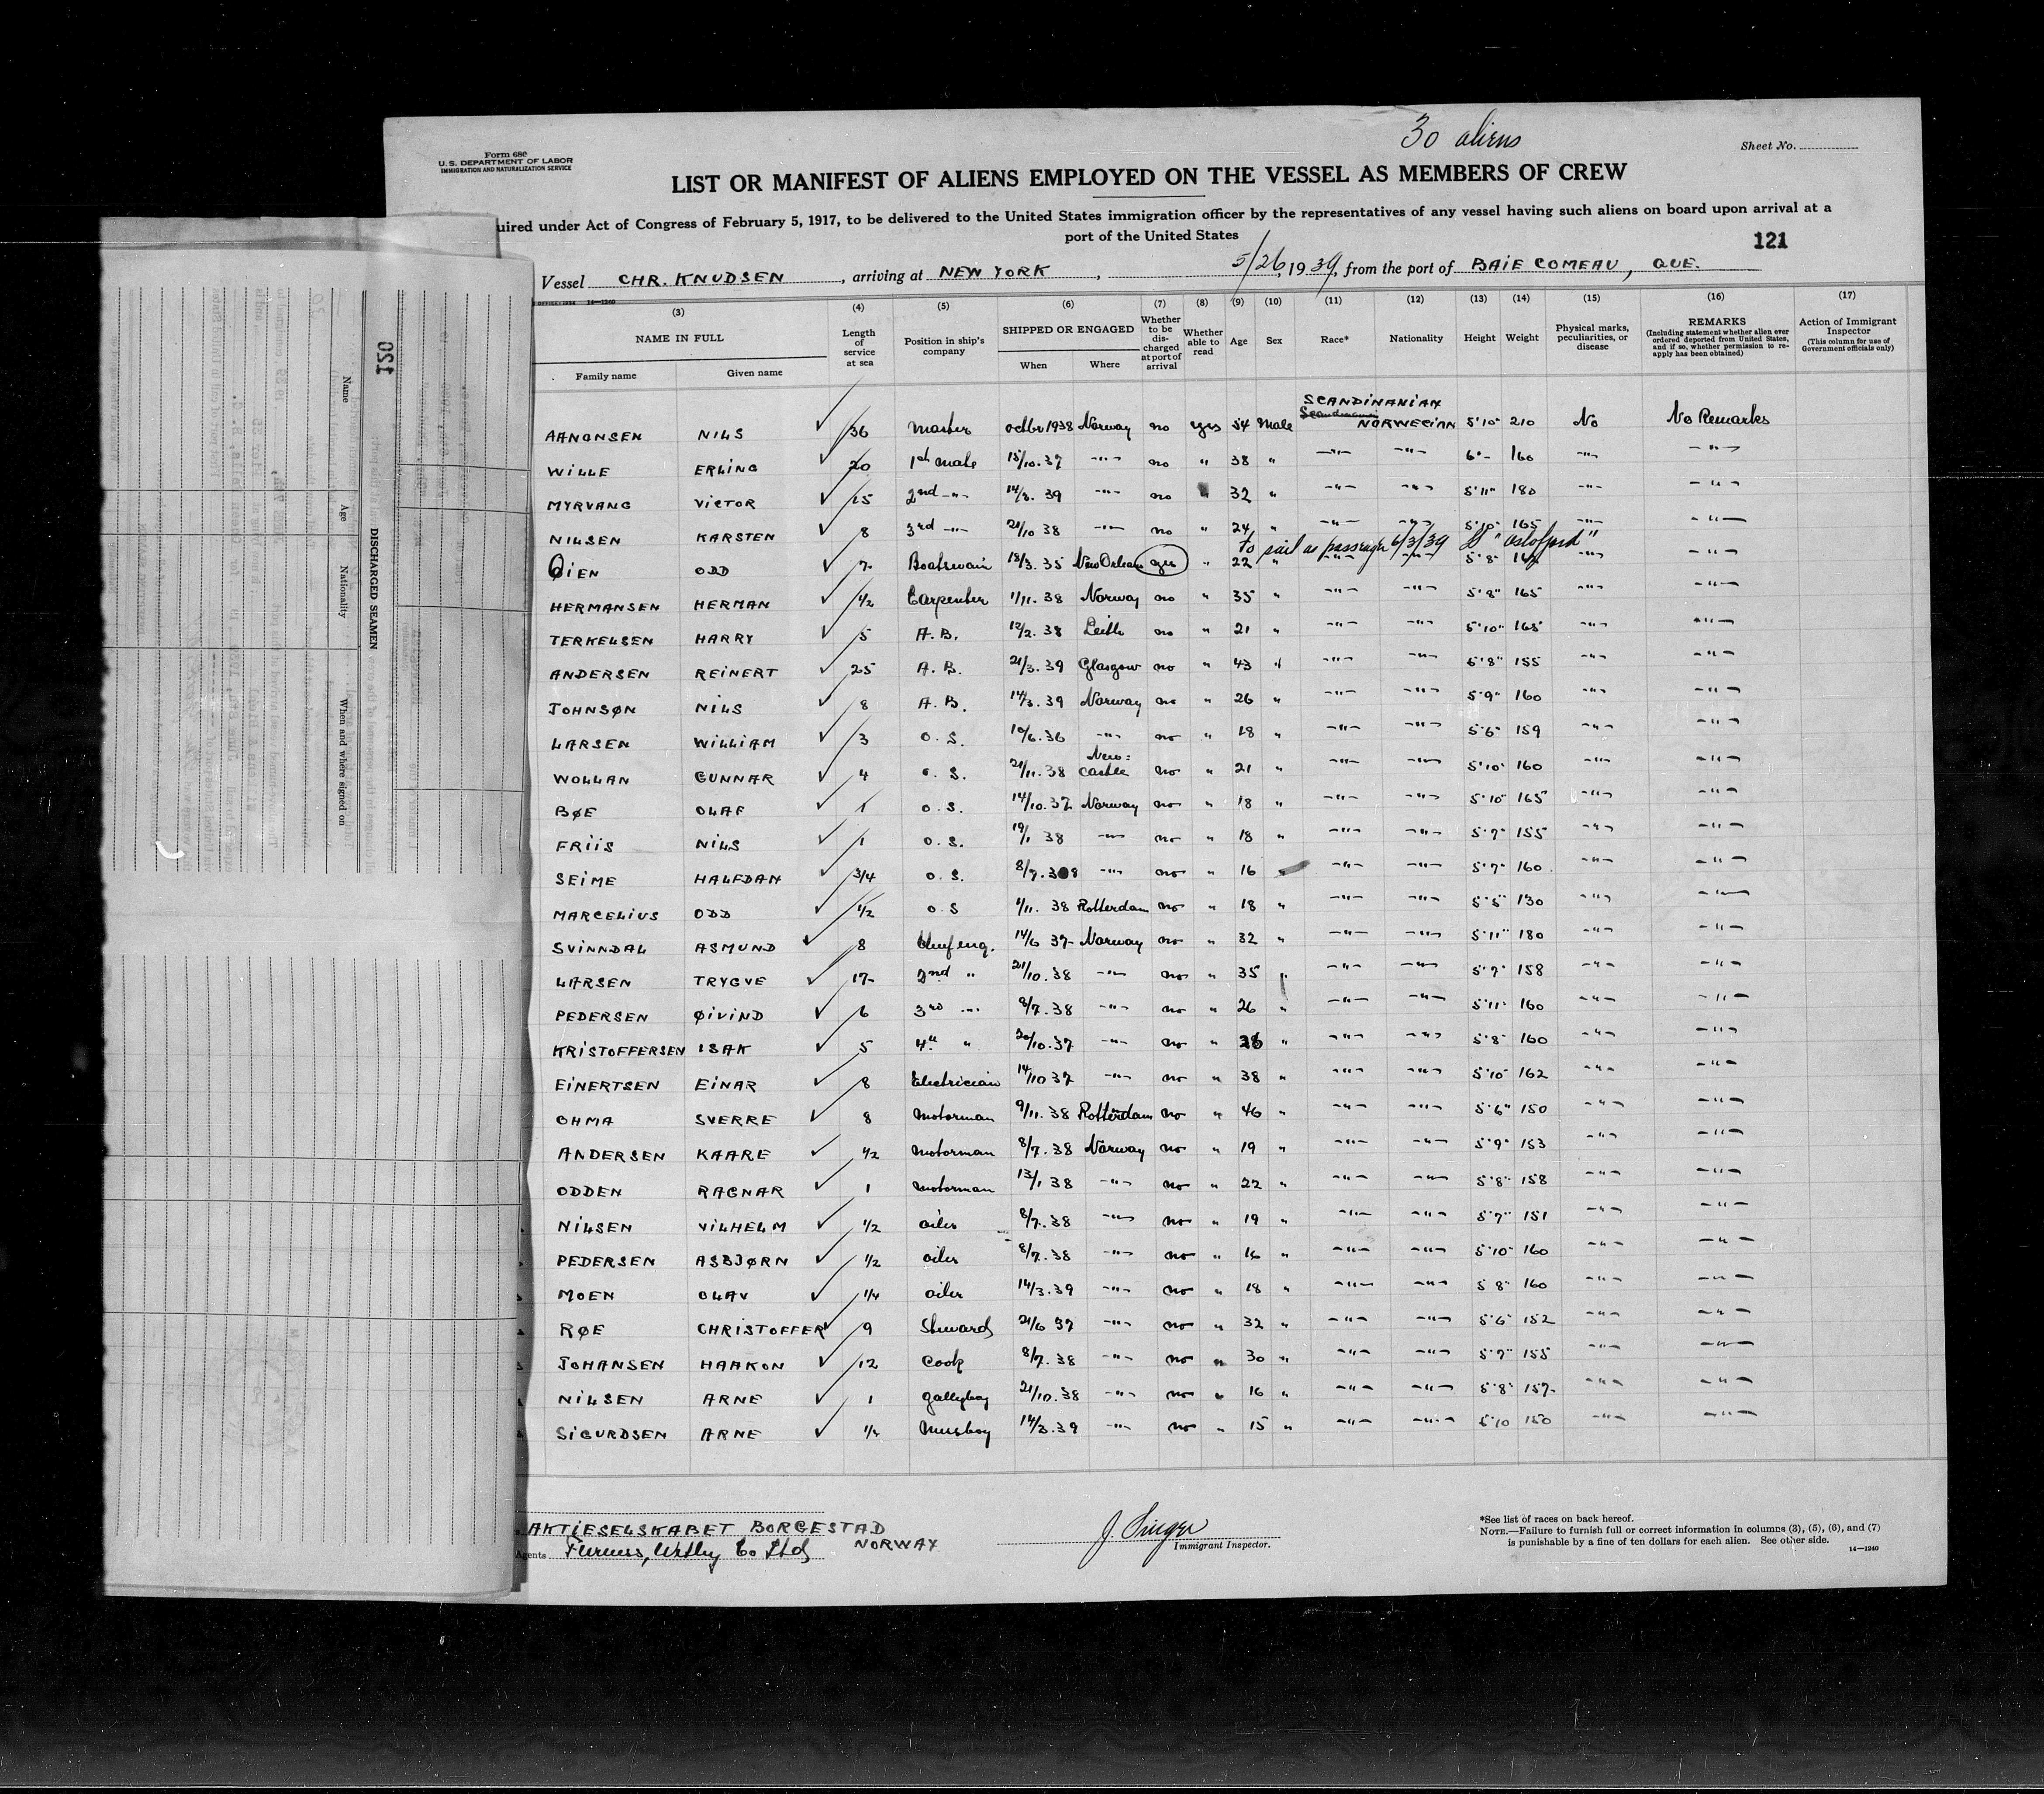 30 aliens
Form 680
U. S. DEPARTMENT OF LABOR
IMMIGRATION AND NATURALIZATION SERVICE
Sheet No.
LIST OR MANIFEST OF ALIENS EMPLOYED ON THE VESSEL AS MEMBERS OF CREW
uired under Act of Congress of February 5, 1917, to be delivered to the United States immigration officer by the representatives of any vessel having such aliens on board upon arrival at a
port of the United States
121
Vessel CHR. KNUDSEN, arriving at NEW YORK, 5/26, 1939, from the port of BAIE COMEAU, QUE.
(3) (4) (5) (6) (7) (8) (9) (10) (11) (12) (13) (14) (15) (16) (17)
NAME IN FULL Length of service at sea Position in ship's company SHIPPED OR ENGAGED Whether to be discharged at port of arrival Whether able to read Age Sex Race* Nationality Height Weight Physical marks, peculiarities, or disease REMARKS (Including statement whether alien ever ordered deported from United States, and if so, whether permission to re-apply has been obtained) Action of Immigrant Inspector (This column for use of Government officials only)
Family name Given name When Where
SCANDINAVIAN
AANONSEN NILS 36 Master octbr 1938 Norway no yes 54 Male NORWEGIAN 5'10" 210 No No Remarks
WILLE ERLING 20 1st mate 15/10.37 -"- no " 38 " -"- -"- 6'- 160 -"- -"-
MYRVANG VICTOR 15 2nd -"- 14/3. 39 -"- no " 32 " -"- -"- 5'11" 180 -"- -"-
NILSEN KARSTEN 8 3rd -"- 21/10 38 -"- no " 24 " -"- -"- 5'10" 165 -"- -"-
to sail as passenger 6/3/39 SS "Oslofjord"
ØIEN ODD 7 Boatswain 18/3. 35 New Orleans yes " 22 " -"- -"- 5'8" -"- -"-
HERMANSEN HERMAN 1/2 Carpenter 1/11. 38 Norway no " 35 " -"- -"- 5'8" 165 -"- -"-
TERKELSEN HARRY 5 A. B. 12/2. 38 Leith no " 21 " -"- -"- 5'10" 165 -"- -"-
ANDERSEN REINERT 25 A. B. 21/3. 39 Glasgow no " 43 " -"- -"- 5'8" 155 -"- -"-
JOHNSØN NILS 8 A. B. 14/3. 39 Norway no " 26 " -"- -"- 5'9" 160 -"- -"-
LARSEN WILLIAM 3 O. S. 10/6.36 -"- no " 18 " -"- -"- 5'6" 159 -"- -"-
WOLLAN GUNNAR 4 O. S. 21/11. 38 New=castle no " 21 " -"- -"- 5'10" 160 -"- -"-
BØE OLAF 1 O. S. 14/10.37 Norway no " 18 " -"- -"- 5'10" 165 -"- -"-
FRIIS NILS 1 O. S. 19/1 38 -"- no " 18 " -"- -"- 5'7" 155 -"- -"-
SEIME HALFDAN 3/4 O. S. 8/7. 38 -"- no " 16 " -"- -"- 5'7" 160 -"- -"-
MARCELIUS ODD 1/2 O. S 1/11. 38 Rotterdam no " 18 " -"- -"- 5'5" 130 -"- -"-
SVINNDAL ASMUND 8 Chief eng. 14/6 37 Norway no " 32 " -"- -"- 5'11" 180 -"- -"-
LARSEN TRYGVE 17 2nd " 21/10.38 -"- no " 35 " -"- -"- 5'7" 158 -"- -"-
PEDERSEN ØIVIND 6 3rd -"- 8/7.38 -"- no " 26 " -"- -"- 5'11" 160 -"- -"-
KRISTOFFERSEN ISAK 5 4th " 20/10.37 -"- no " " -"- -"- 5'8" 160 -"- -"-
EINERTSEN EINAR 8 Electrician 14/10 37 -"- no " 38 " -"- -"- 5'10" 162 -"- -"-
OHMA SVERRE 8 Motorman 9/11. 38 Rotterdam no " 46 " -"- -"- 5'6" 150 -"- -"-
ANDERSEN KAARE 1/2 Motorman 8/7. 38 Norway no " 19 " -"- -"- 5'9" 153 -"- -"-
ODDEN RAGNAR 1 Motorman 13/1 38 -"- no " 22 " -"- -"- 5'8" 158 -"- -"-
NILSEN VILHELM 1/2 oiler 8/7.38 -"- no " 19 " -"- -"- 5'7" 151 -"- -"-
PEDERSEN ASBJØRN 1/2 oiler 8/7.38 -"- no " 16 " -"- -"- 5'10" 160 -"- -"-
MOEN OLAV 1/4 oiler 14/3.39 -"- no " 18 " -"- -"- 5'8" 160 -"- -"-
RØE CHRISTOFFER 9 Steward 21/6 37 -"- no " 32 " -"- -"- 5'6" 152 -"- -"-
JOHANSEN HAAKON 12 Cook 8/7. 38 -"- no " 30 " -"- -"- 5'7" 155 -"- -"-
NILSEN ARNE 1 Gallyboy 21/10.38 -"- no " 16 " -"- -"- 5'8" 157 -"- -"-
SIGURDSEN ARNE 1/4 Messboy 14/3.39 -"- no " 15 " -"- -"- 5'10 150 -"- -"-
AKTIESELSKABET BORGESTAD
NORWAY
Agents Furness, Withy Co Ltd
J. Singer
Immigrant Inspector.
*See list of races on back hereof.
NOTE.—Failure to furnish full or correct information in columns (3), (5), (6), and (7)
is punishable by a fine of ten dollars for each alien. See other side.
14—1240
120
DISCHARGED SEAMEN
Name
Age
Nationality
When and where signed on